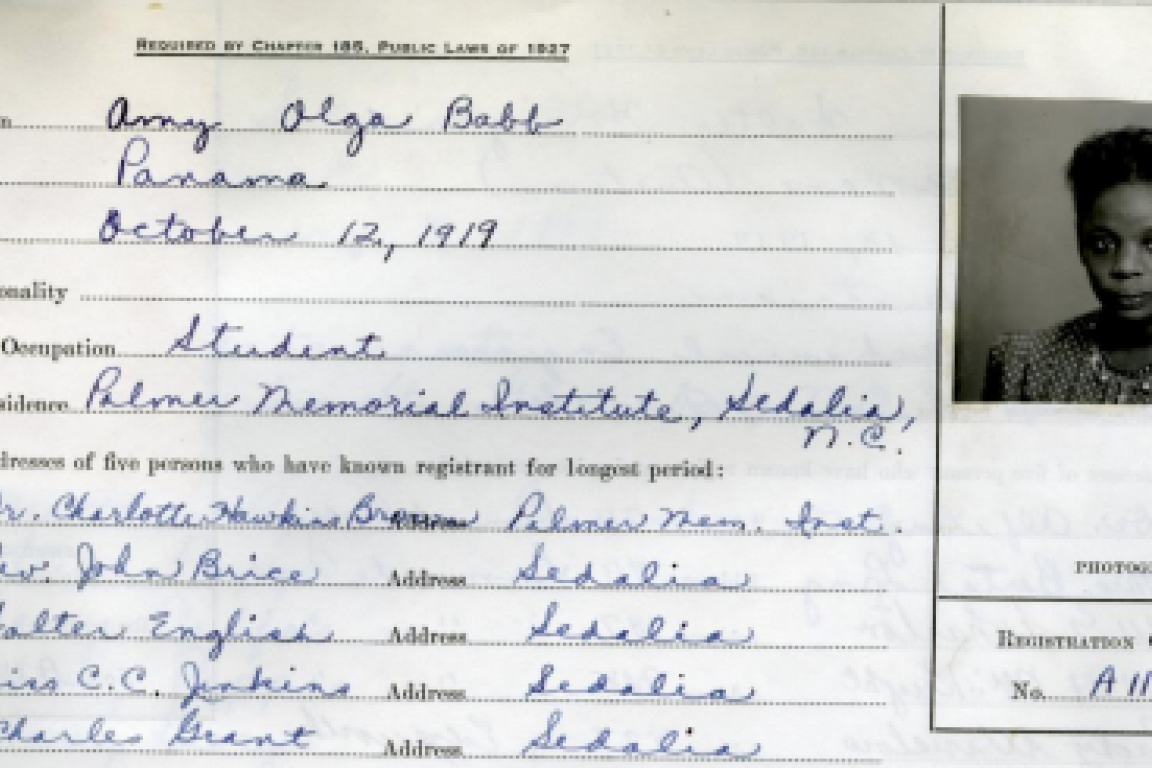 REQUIRED BY CHAPTER 185, PUBLIC LAWS OF 1927
n Amy Olga Babb
Panama
October 12, 1919
onality
Occupation Student
sidence Palmer Memorial Institute, Sedalia,
N.C.
dresses of five persons who have known registrant for longest period:
r. Charlotte Hawkins Brown Address Palmer Mem. Inst.
ev. John Brice Address Sedalia
alter English Address Sedalia
iss C.C. Jenkins Address Sedalia
Charles Grant Address Sedalia
PHOTOG
REGISTRATION
No. A 11